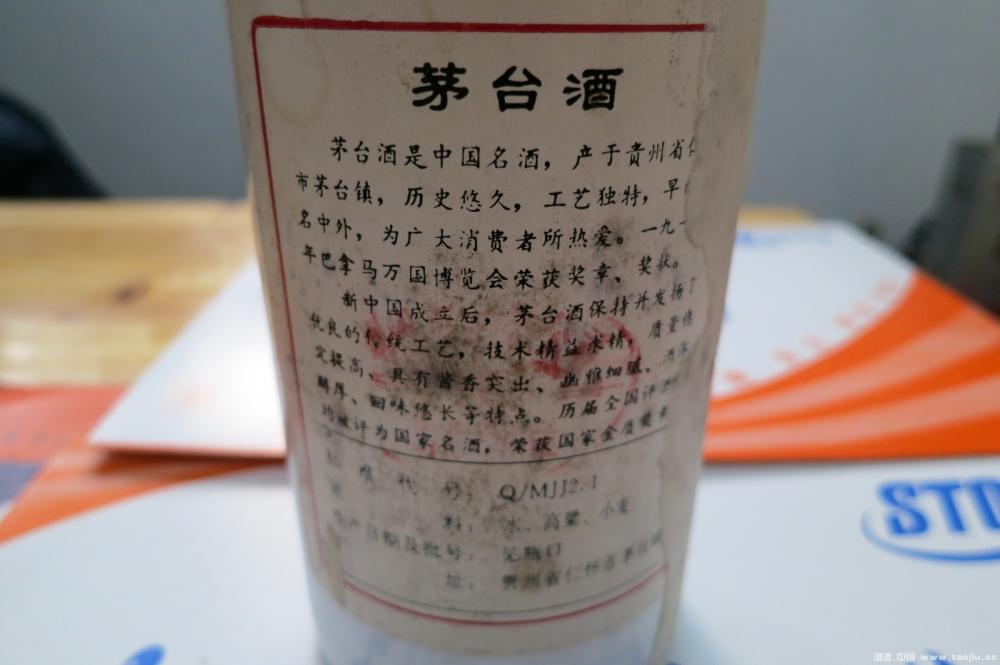 茅台酒
茅台酒是中国名酒，产于贵州省
市茅台镇，历史悠久，工艺独特，早
名中外，为广大消费者所热爱。一九一
年巴拿马万国博览会荣获奖章、奖状。
新中国成立后，茅台酒保持并发扬了
优良的传统工艺，技术精益求精，质量稳
定提高、具有酱香突出、幽雅细腻、酒体
醇厚、回味悠长等特点。历届全国评酒
均被评为国家名酒，荣获国家金质奖章
准代号：Q/MJJ2.1
料：水、高粱、小麦
生产日期及批号：见瓶口
址：贵州省仁怀市茅台镇
STD
淘酒.中国 www.taojiu.cc